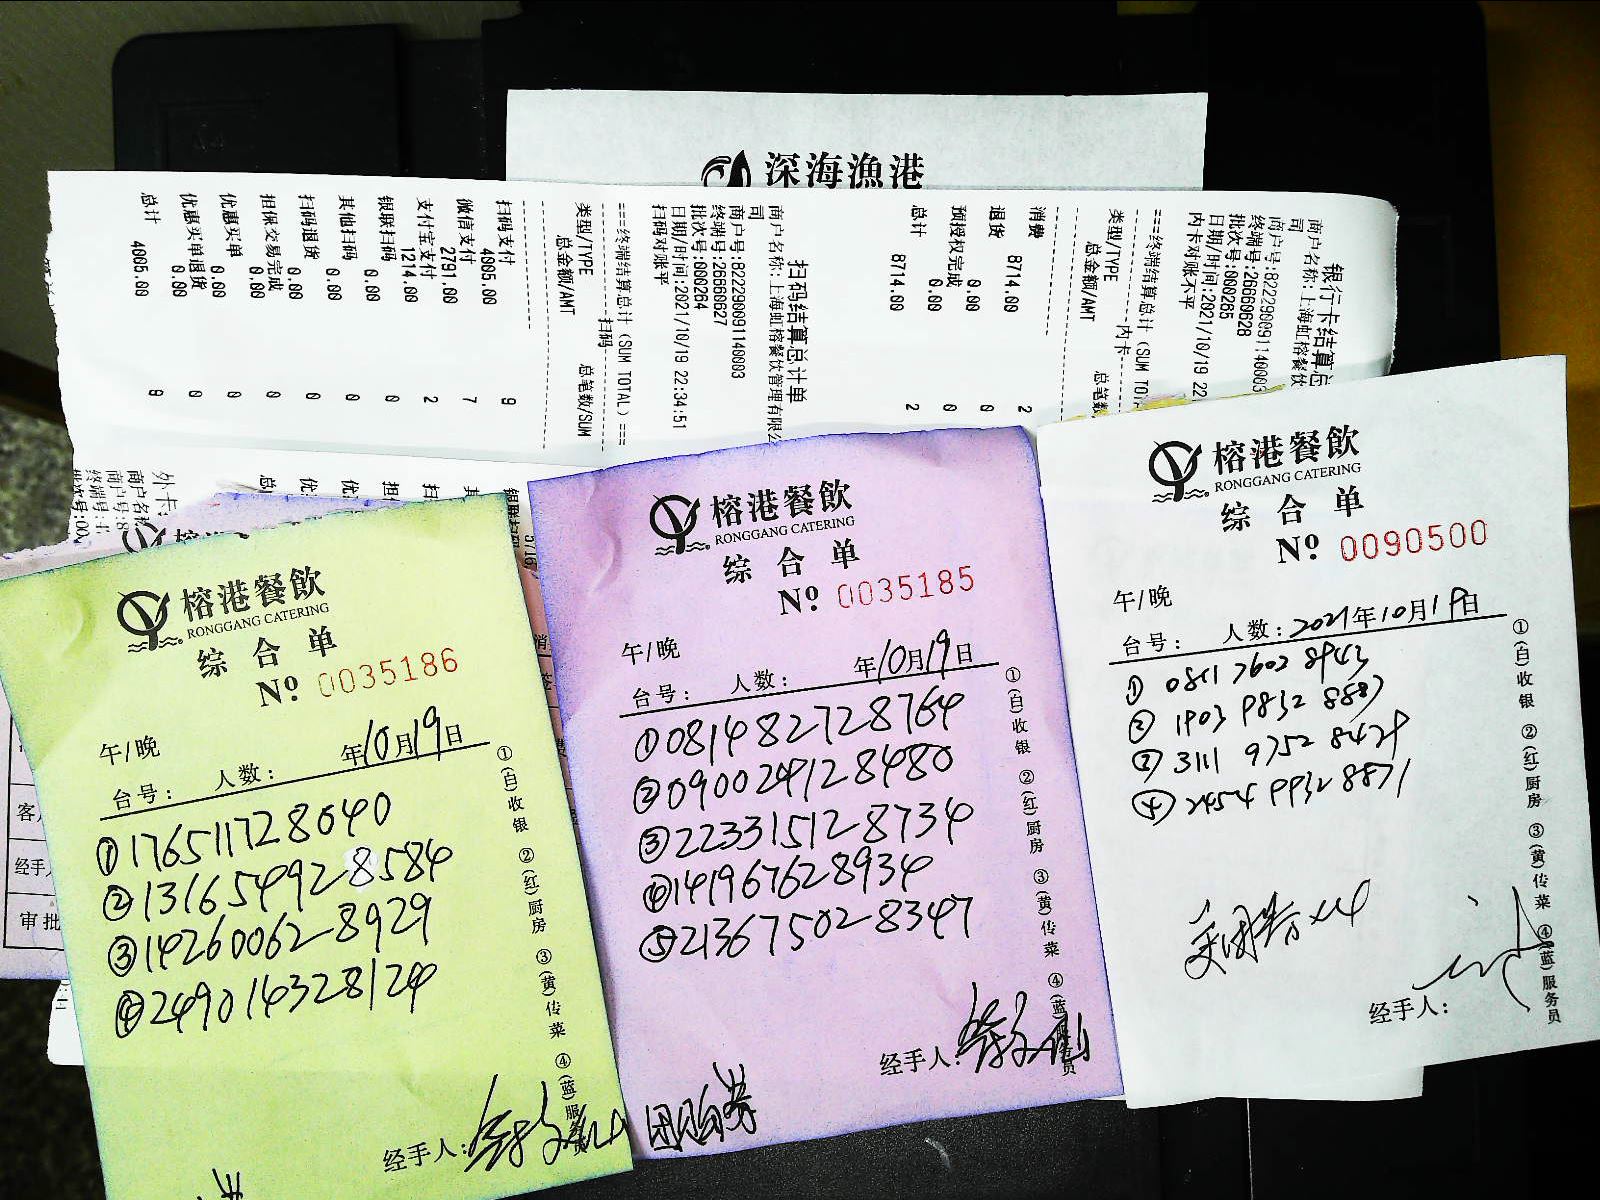 深海漁港
银行卡结算总
商户名称:上海虹榕餐饮
司
商户号:822290091140003
终端号:26660628
批次号:000265
日期/时间:2021/10/19 22
内卡对账不平
===终端结算总计(SUM TOTAL
内卡
类型/TYPE 总笔数
总金额/AMT
消费 2
8714.00
退货 0
0.00
预授权完成 0
0.00
总计 2
8714.00
扫码结算总计单
商户名称:上海虹榕餐饮管理有限公
司
商户号:822290091140003
终端号:26660627
批次号:000264
日期/时间:2021/10/19 22:34:51
扫码对账平
===终端结算总计(SUM TOTAL)===
扫码
类型/TYPE 总笔数/SUM
总金额/AMT
扫码支付 9
4005.00
微信支付 7
2791.00
支付宝支付 2
1214.00
银联扫码 0
0.00
其他扫码 0
0.00
扫码退货 0
0.00
担保交易完成 0
0.00
优惠买单 0
0.00
优惠买单退货 0
0.00
总计 9
4005.00
外卡
榕港餐飲
RONGGANG CATERING
综合单
Nº 0035186
午/晚
年10月19日
台号: 人数:
①176511728040
②131654928584
③142600628929
④249014328124
经手人:
①(白)收银 ②(红)厨房 ③(黄)传菜 ④(蓝)服务员
榕港餐飲
RONGGANG CATERING
综合单
Nº 0035185
午/晚
年10月19日
台号: 人数:
①081482728764
②090024128480
③223315128734
④141967628934
⑤213675028347
经手人:
团购券
①(白)收银 ②(红)厨房 ③(黄)传菜 ④(蓝)服务员
榕港餐飲
RONGGANG CATERING
综合单
Nº 0090500
午/晚
台号: 人数: 2021年10月19日
① 0811 7602 8943
② 1903 9832 8887
③ 3111 9752 8429
④ 2454 9932 8871
经手人:
①(白)收银 ②(红)厨房 ③(黄)传菜 ④(蓝)服务员